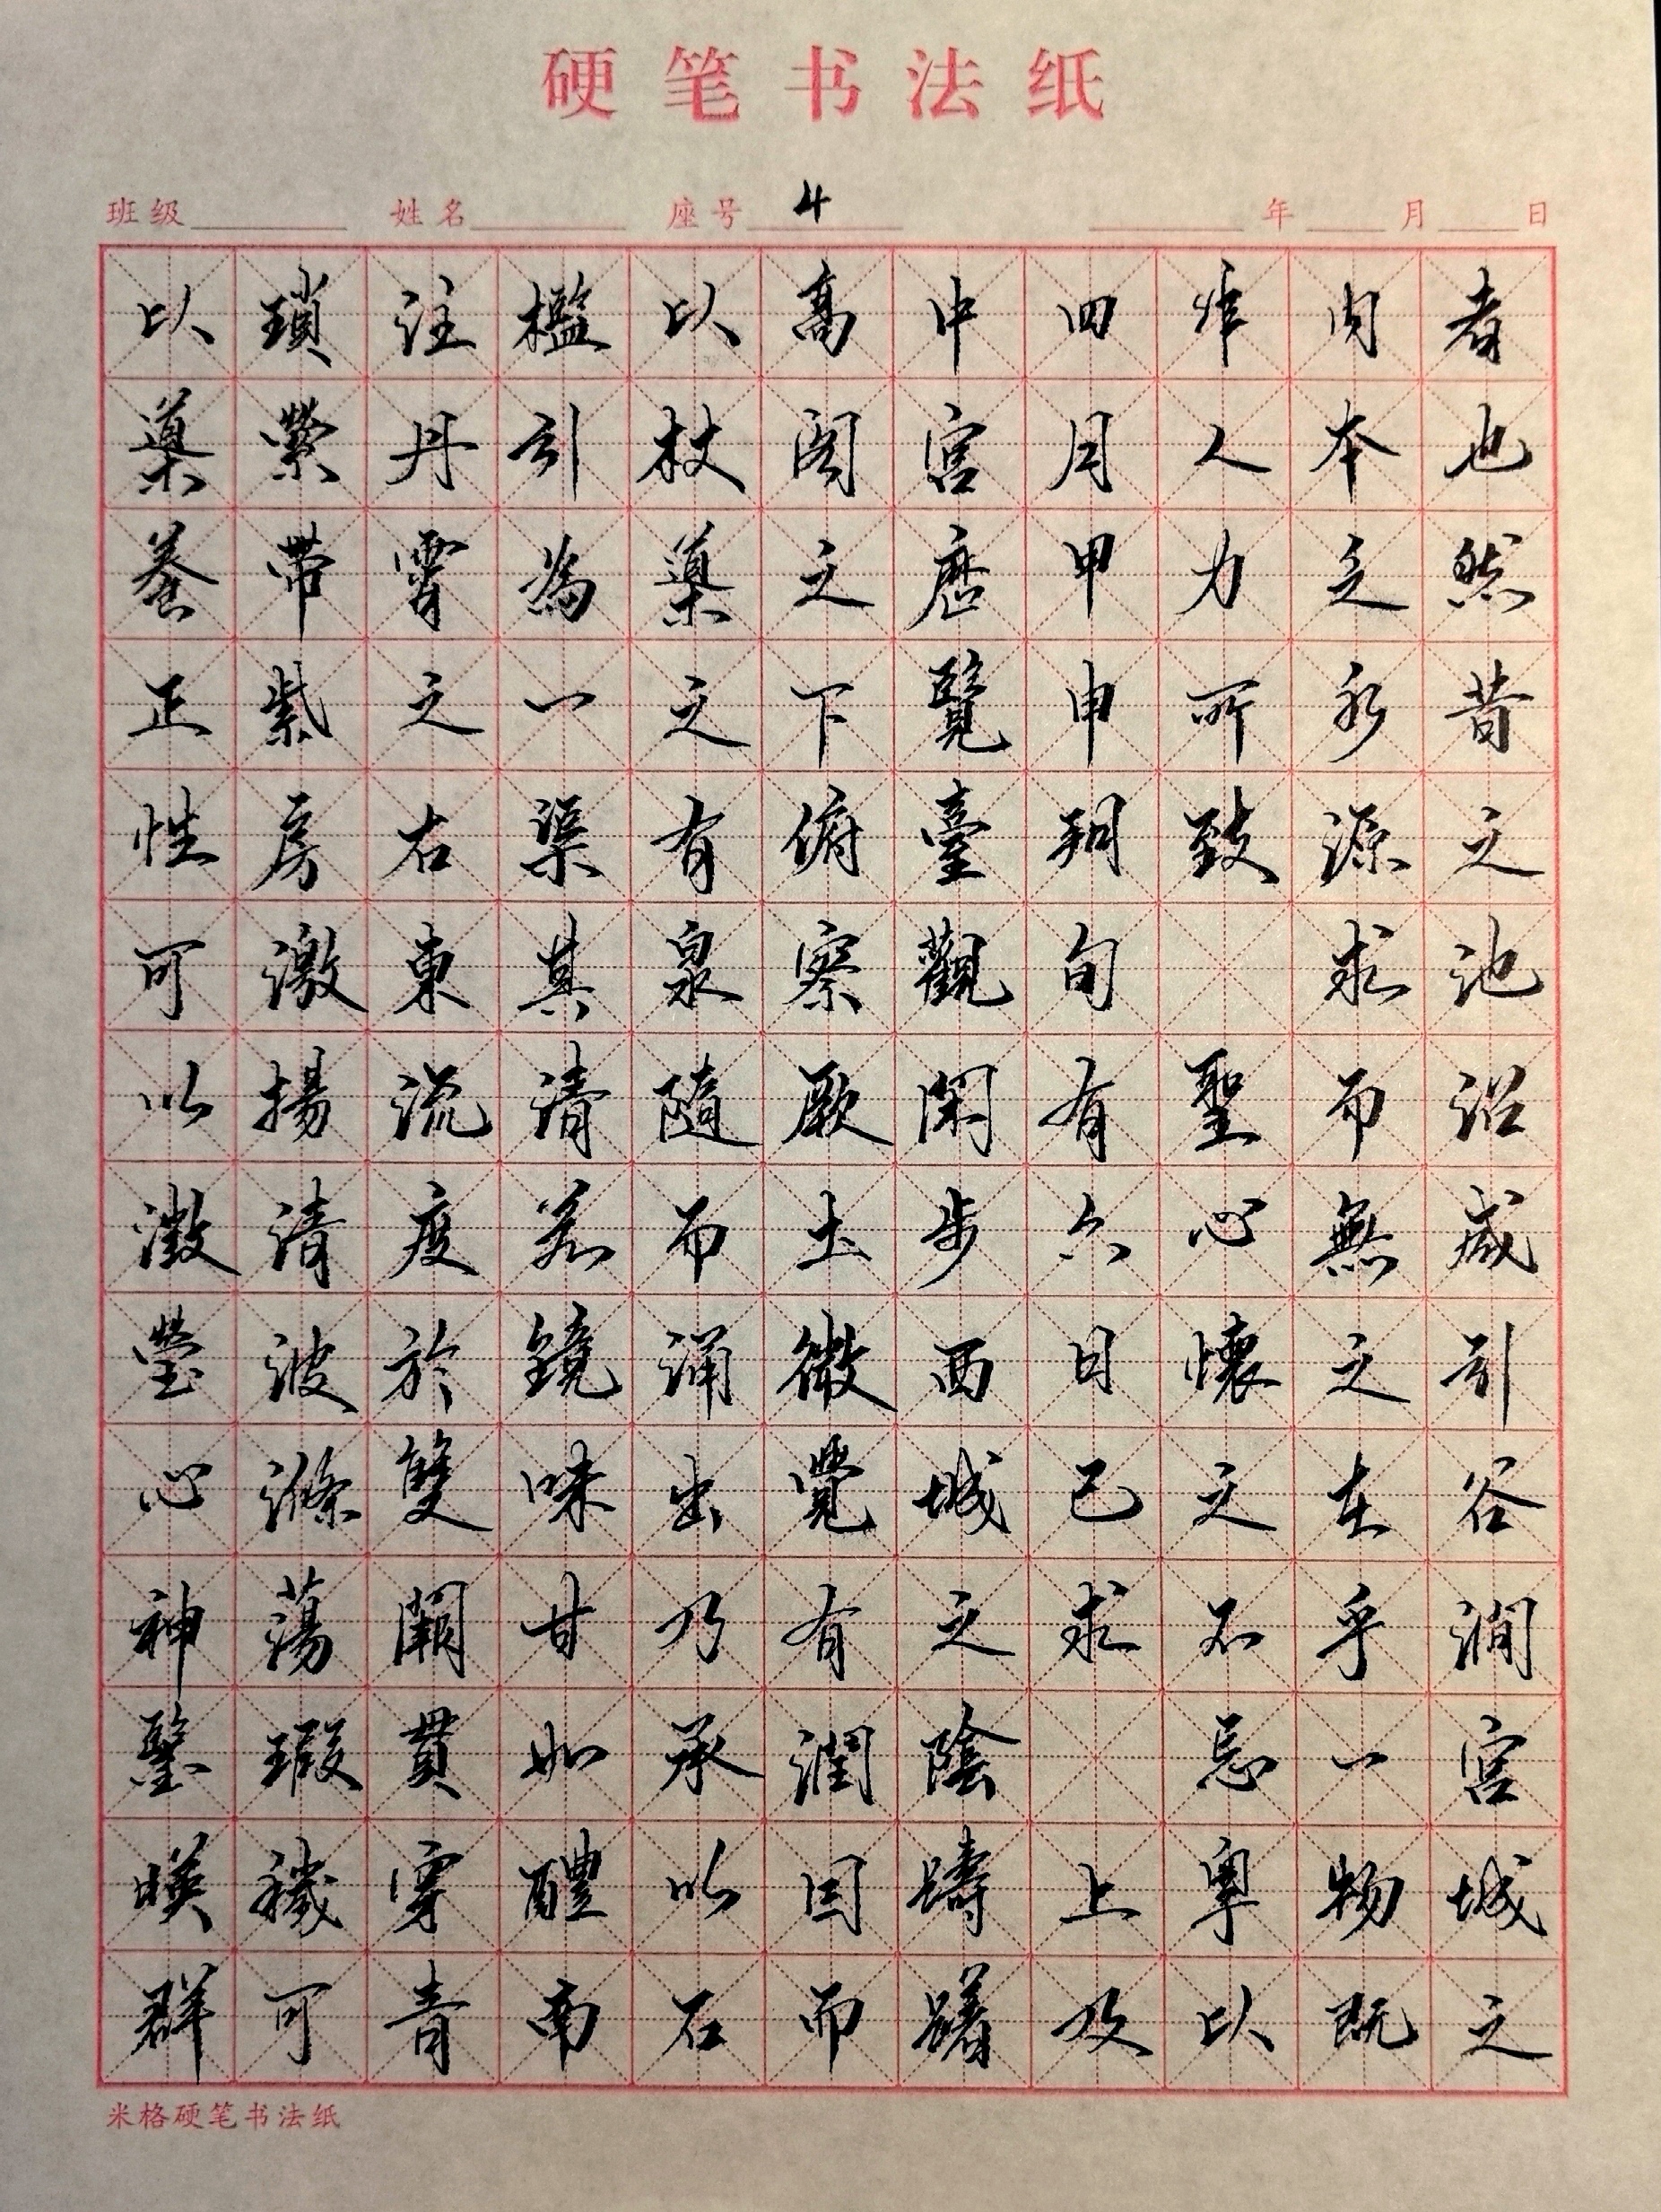 硬笔书法纸
班级 姓名 座号 4 年 月 日
者也然昔之池沼咸引谷澗宮城之
内本乏水源求而無之在乎一物既
非人力所致 聖心懷之不忘粵以
四月甲申朔旬有六日己亥 上及
中宮歷覽臺觀閑步西城之陰躊躇
高閣之下俯察厥土微覺有潤因而
以杖導之有泉隨而涌出乃承以石
檻引為一渠其清若鏡味甘如醴南
注丹霄之右東流度於雙闕貫穿青
瑣縈帶紫房激揚清波滌蕩瑕穢可
以導養正性可以澂瑩心神鑒暎群
米格硬笔书法纸